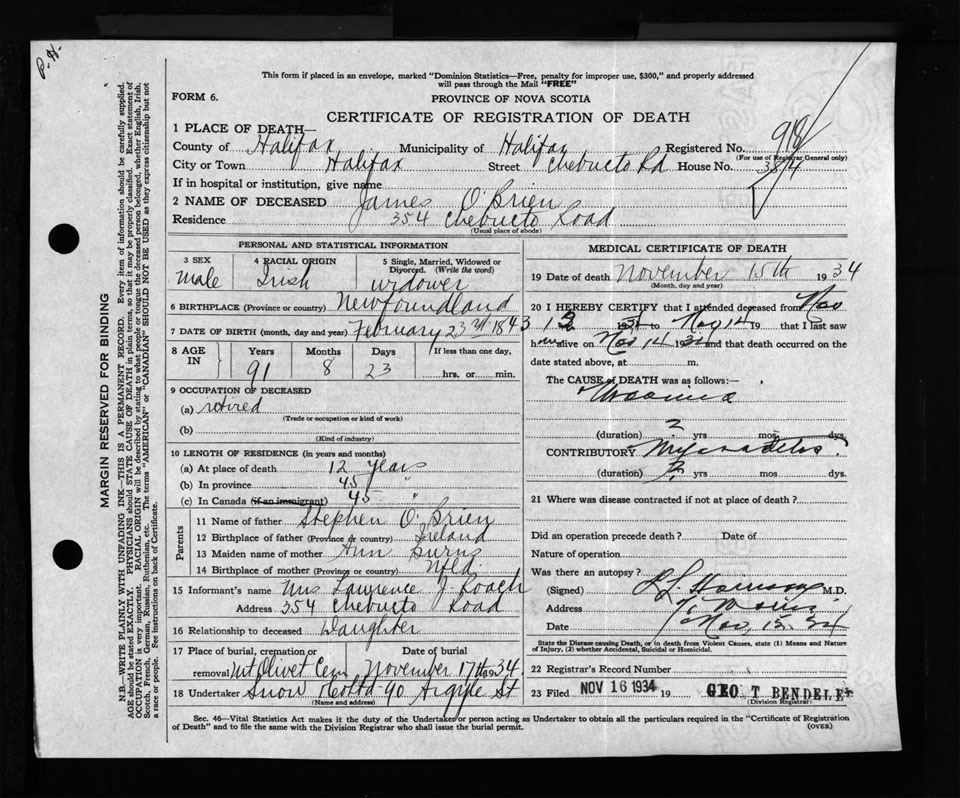 P.H.
This form if placed in an envelope, marked "Dominion Statistics—Free, penalty for improper use, $300," and properly addressed
will pass through the Mail "FREE"
FORM 6.
PROVINCE OF NOVA SCOTIA
CERTIFICATE OF REGISTRATION OF DEATH
1 PLACE OF DEATH—
County of Halifax Municipality of Halifax Registered No. 918
(For use of Registrar General only)
City or Town Halifax Street Chebucto Rd House No. 354
If in hospital or institution, give name
2 NAME OF DECEASED James O'Brien
Residence 354 Chebucto Road
(Usual place of abode)
PERSONAL AND STATISTICAL INFORMATION
3 SEX 4 RACIAL ORIGIN 5 Single, Married, Widowed or
Divorced. (Write the word)
Male Irish widower
6 BIRTHPLACE (Province or country) Newfoundland
7 DATE OF BIRTH (month, day and year) February 23rd 1843
8 AGE IN Years Months Days If less than one day,
91 8 23 hrs. or min.
9 OCCUPATION OF DECEASED
(a) retired
(Trade or occupation or kind of work)
(b)
(Kind of industry)
10 LENGTH OF RESIDENCE (in years and months)
(a) At place of death 12 years
(b) In province 45 "
(c) In Canada (if an immigrant) 45 "
Parents
11 Name of father Stephen O'Brien
12 Birthplace of father (Province or country) Ireland
13 Maiden name of mother Ann Burns
14 Birthplace of mother (Province or country) Nfld.
15 Informant's name Mrs Lawrence J. Roach
Address 354 Chebucto Road
16 Relationship to deceased Daughter
17 Place of burial, cremation or Date of burial
removal Mt Olivet Cem November 17th 1934
18 Undertaker Snow & Co Ltd 90 Argyle St
(Name and address)
MEDICAL CERTIFICATE OF DEATH
19 Date of death November 15th 1934
(Month, day and year)
20 I HEREBY CERTIFY that I attended deceased from Nov
to Nov 14 19 that I last saw
h alive on Nov 14 1934 and that death occurred on the
date stated above, at m.
The CAUSE of DEATH was as follows:—
(duration) 2 yrs mos. dys.
CONTRIBUTORY
(duration) yrs mos. dys.
21 Where was disease contracted if not at place of death?
Did an operation precede death? Date of
Nature of operation
Was there an autopsy?
(Signed) M.D.
Address
Date Nov, 15. 34
State the Disease causing Death, or in death from Violent Causes, state (1) Means and Nature
of Injury, (2) whether Accidental, Suicidal or Homicidal.
22 Registrar's Record Number
23 Filed NOV 16 1934 19 GEO T BENDELE
(Division Registrar)
Sec. 46—Vital Statistics Act makes it the duty of the Undertaker or person acting as Undertaker to obtain all the particulars required in the "Certificate of Registration
of Death" and to file the same with the Division Registrar who shall issue the burial permit. (OVER)
MARGIN RESERVED FOR BINDING
N.B.—WRITE PLAINLY WITH UNFADING INK—THIS IS A PERMANENT RECORD. Every item of information should be carefully supplied.
AGE should be stated EXACTLY. PHYSICIANS should STATE CAUSE OF DEATH in plain terms, so that it may be properly classified. Exact statement of
OCCUPATION is very important. RACIAL ORIGIN will be described by stating to what people or tongue the deceased person belonged, whether English, Irish,
Scotch, French, German, Russian, Ruthenian, etc. The terms "AMERICAN" or "CANADIAN" SHOULD NOT BE USED as they express citizenship but not
a race or people. See instructions on back of Certificate.